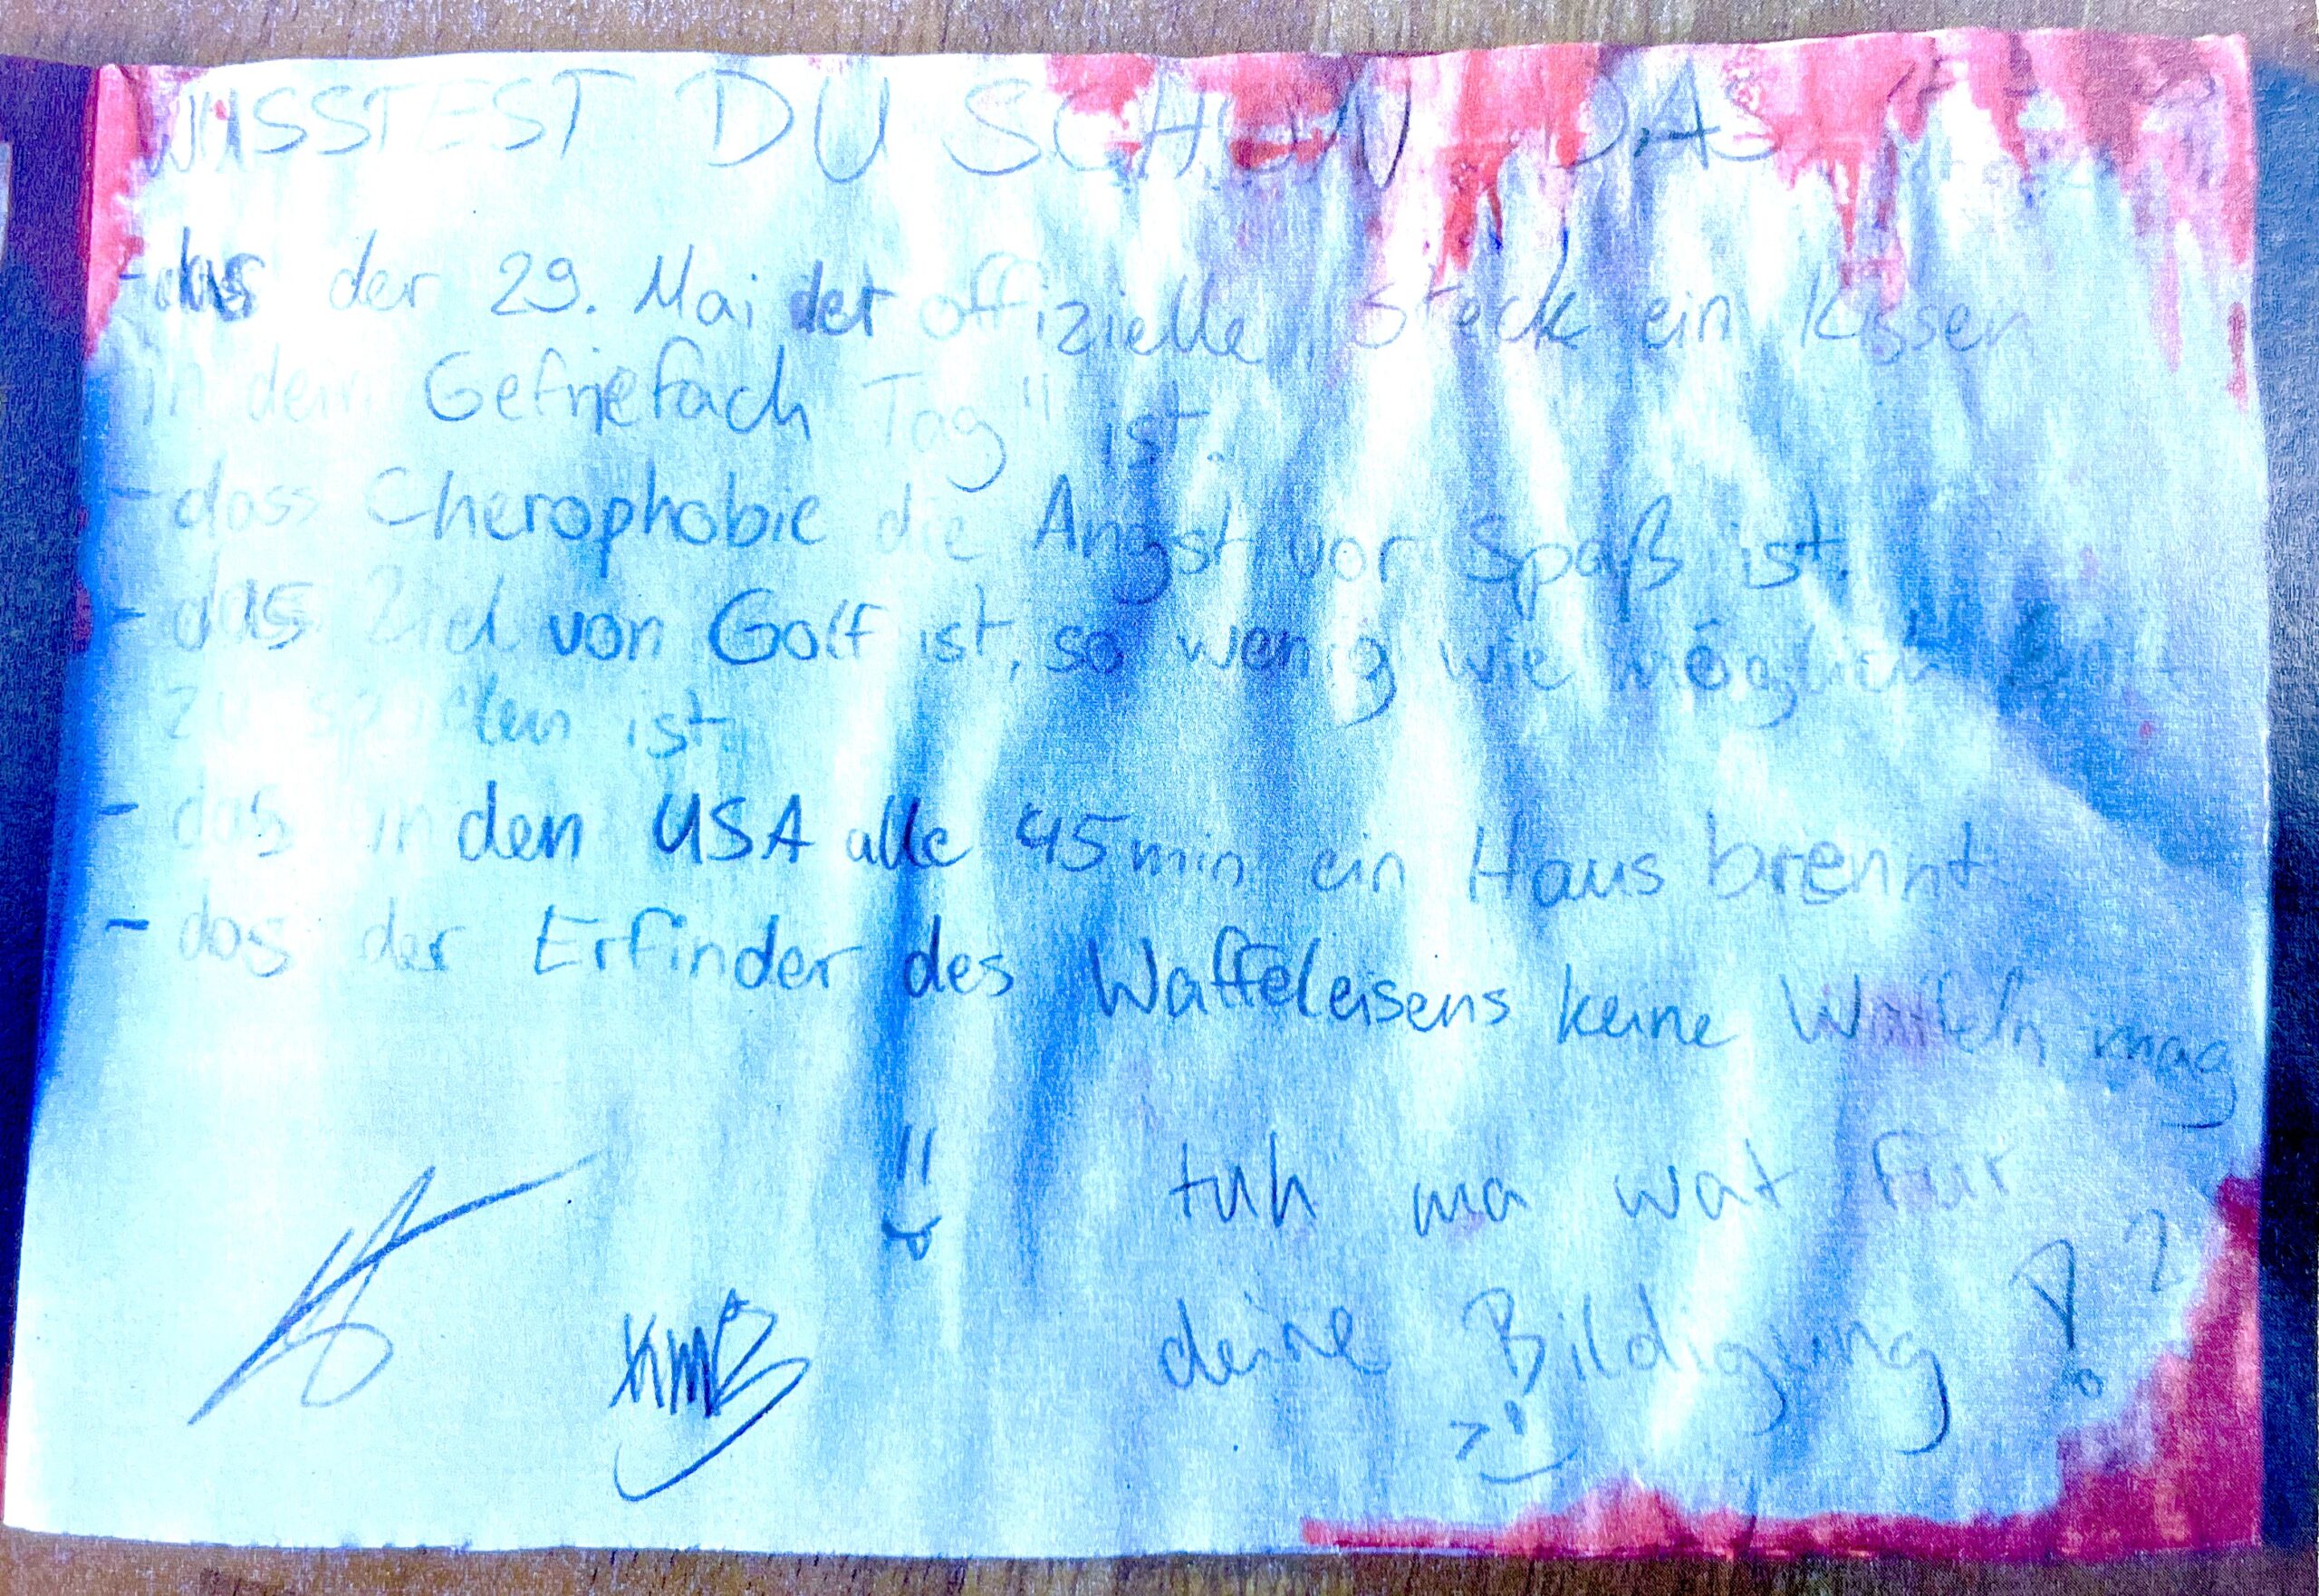 WUSSTEST DU SCHON DAS
- das der 29. Mai der offizielle „Steck ein Kissen
in dein Gefrjefach Tag" ist.
- dass Cherophobie die Angst vor Spaß ist.
- das Ziel von Golf ist, so wenig wie möglich
zu spielen ist
- das in den USA alle 45min ein Haus brennt
- das der Erfinder des Waffeleisens keine Waffeln mag
tuh ma wat für
deine Bildigung !?
KMB